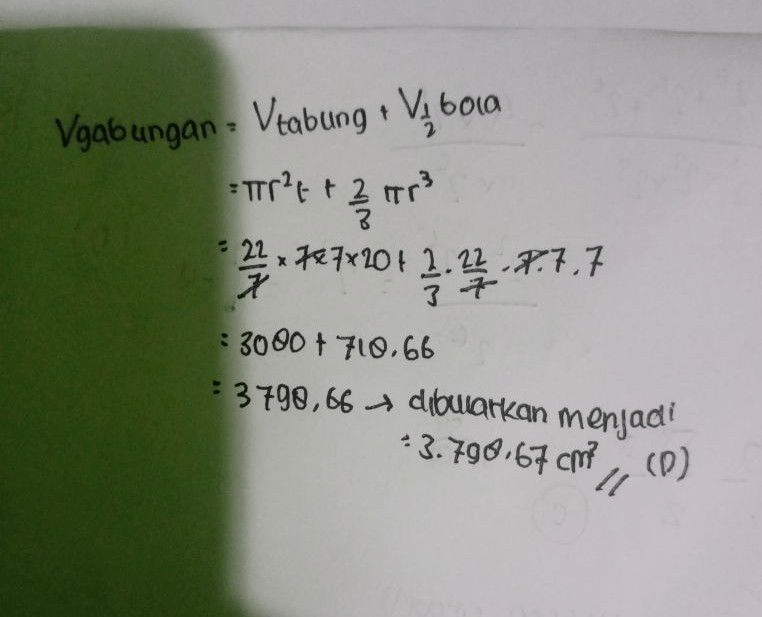 Vgabungan = Vtabung + V½ bola
= πr²t + 2/3 πr³
= 22/7 × 7×7×20 + 2/3 . 22/7 . 7.7.7
= 3080 + 718.66
= 3798,66 → dibularkan menjadi
= 3.798,67 cm³ // (D)